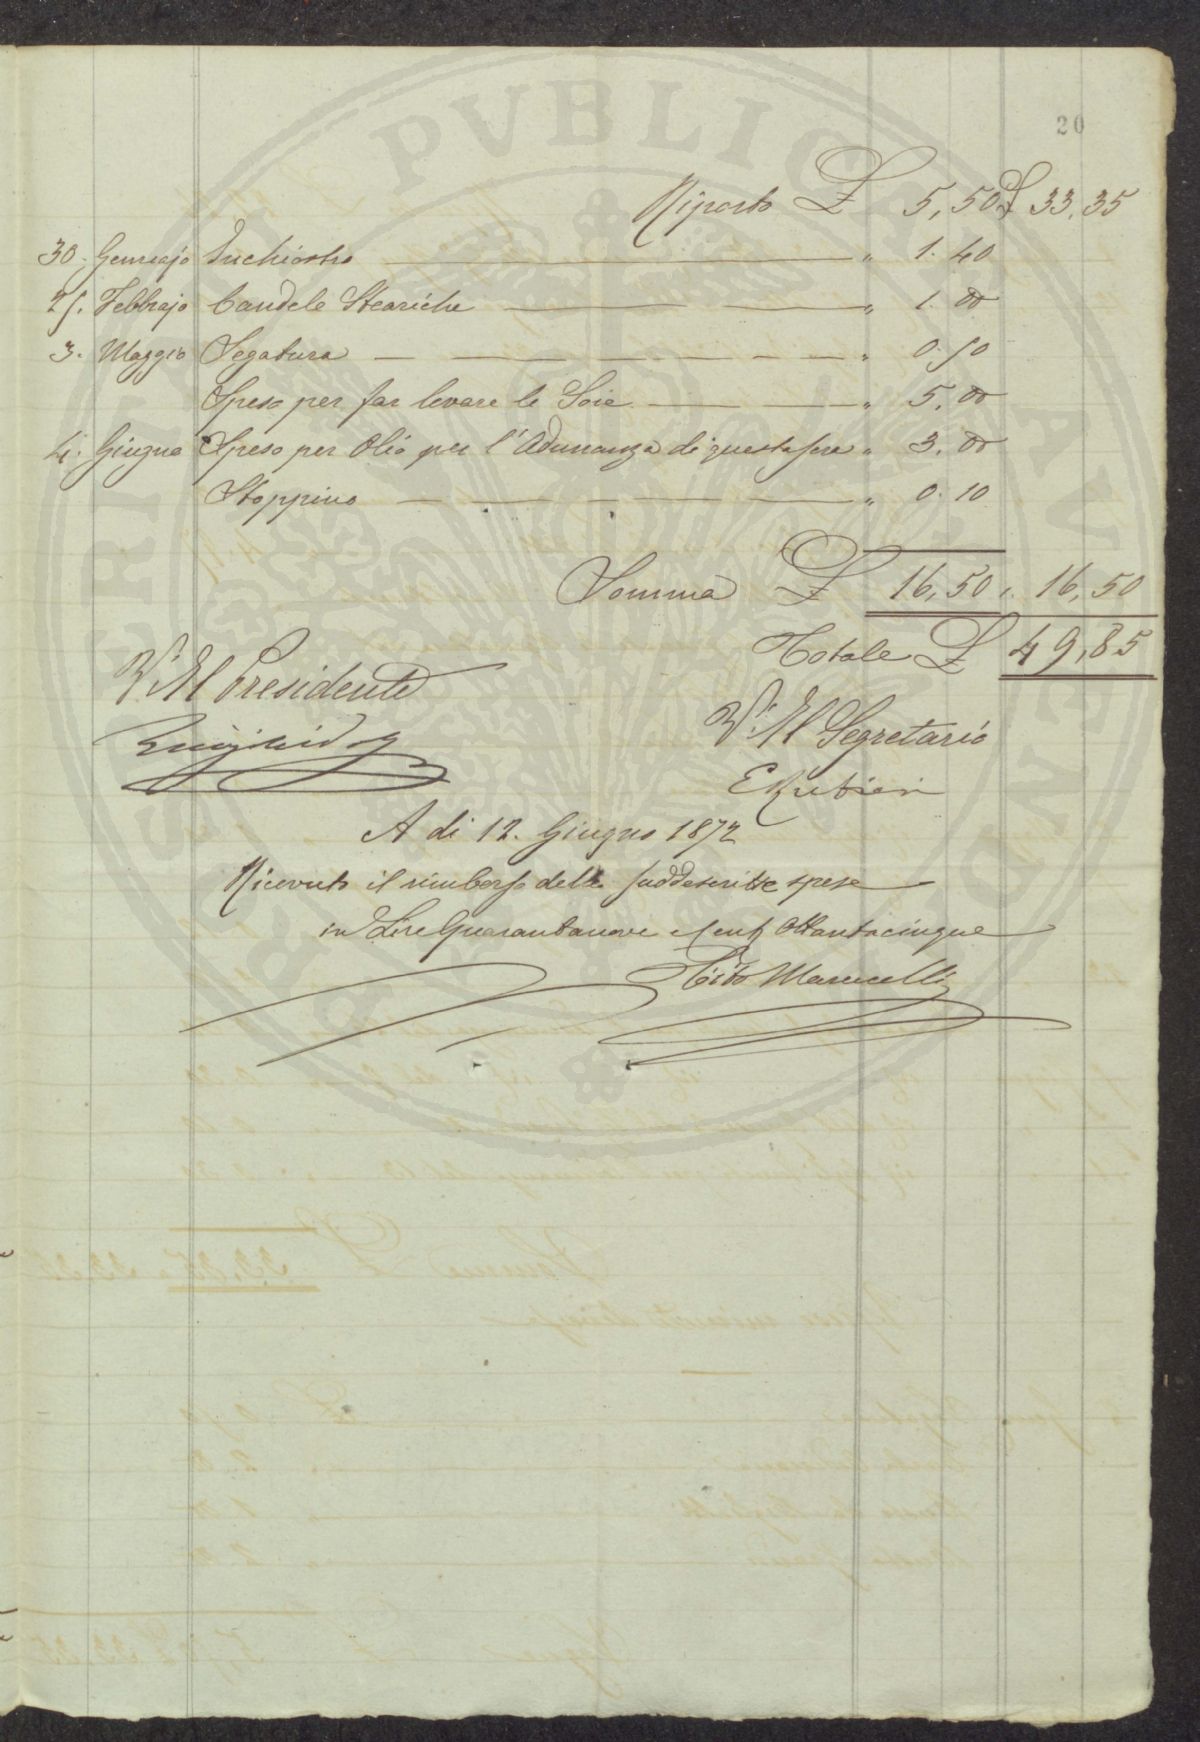 20
Riporto £ 5,50 £ 33,35
30. Gennajo Inchiostro " 1.40
25. Febbrajo Candele Steariche " 1.00
3. Maggio Segatura " 0.50
Speso per far levare le Soie " 5.00
4. Giugno Speso per Olio per l'Adunanza di questa sera " 3.00
Stoppino " 0.10
Somma £ 16,50 " 16,50
Totale £ 49,85
V. Il Presidente
V. Il Segretario
E Rubieri
A di 12. Giugno 1872
Ricevuto il rimborso delle suddescritte spese
in Lire Quarantanove e Cent Ottantacinque
Tito Marucelli